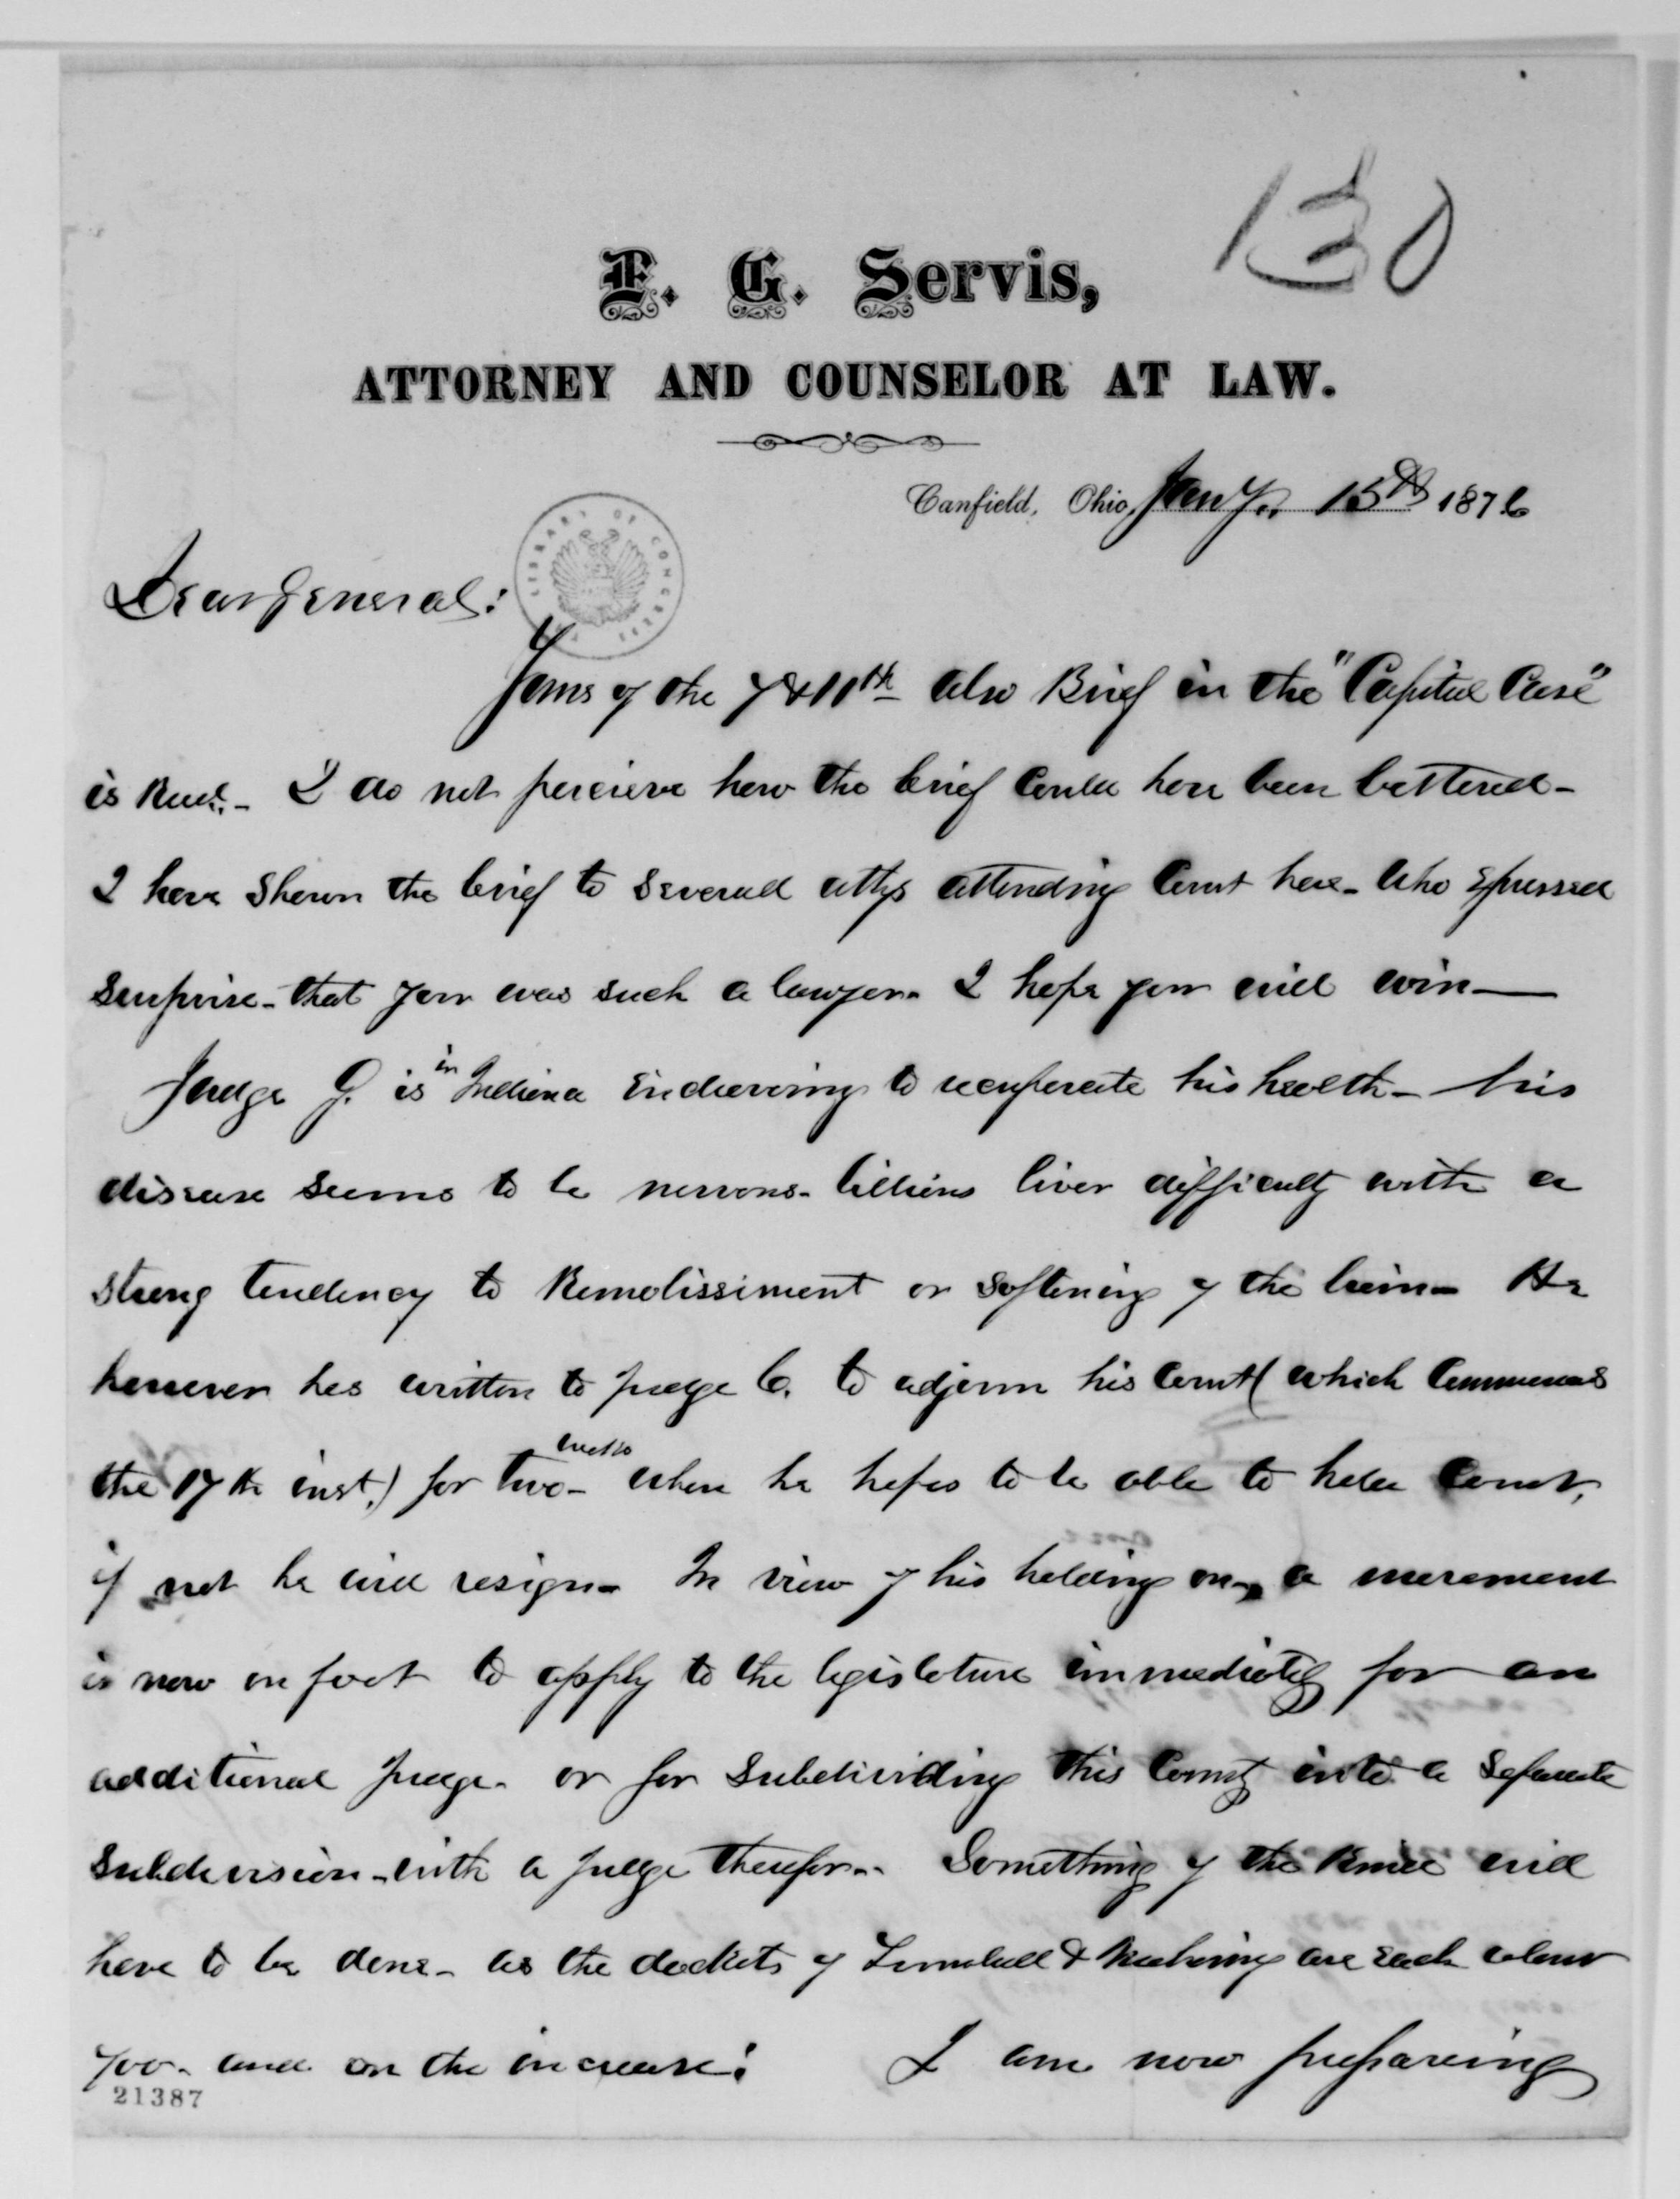 130
F. G. Servis,
ATTORNEY AND COUNSELOR AT LAW.
Canfield, Ohio, Jany. 15th 1876
LIBRARY OF CONGRESS
Dear General:
Yours of the 7 & 11th also Brief in the "Capitol Case"
is Recd.- I do not percieve how the brief could have been bettered-
I have shown the brief to several attys attending Court here- who expressed
surprise- that you was such a lawyer. I hope you will win-
Judge G. is in Indiana endeavoring to recuperate his health- his
disease seems to be nervous- billious liver difficulty with a
strong tendency to Remolissiment or softening of the brain- He
however has written to Judge C. to adjourn his Court (which commences
the 17th inst.) for two weeks- when he hopes to be able to hold Court,
if not he will resign- In view of his holding on, a movement
is now on foot to apply to the legislature immediately for an
additional Judge- or for subdividing this County into a separate
subdivision- with a Judge therefor.- Something of the kind will
have to be done- as the dockets of Trumbull & Mahoning are each about
700- and on the increase: I am now preparing
21387